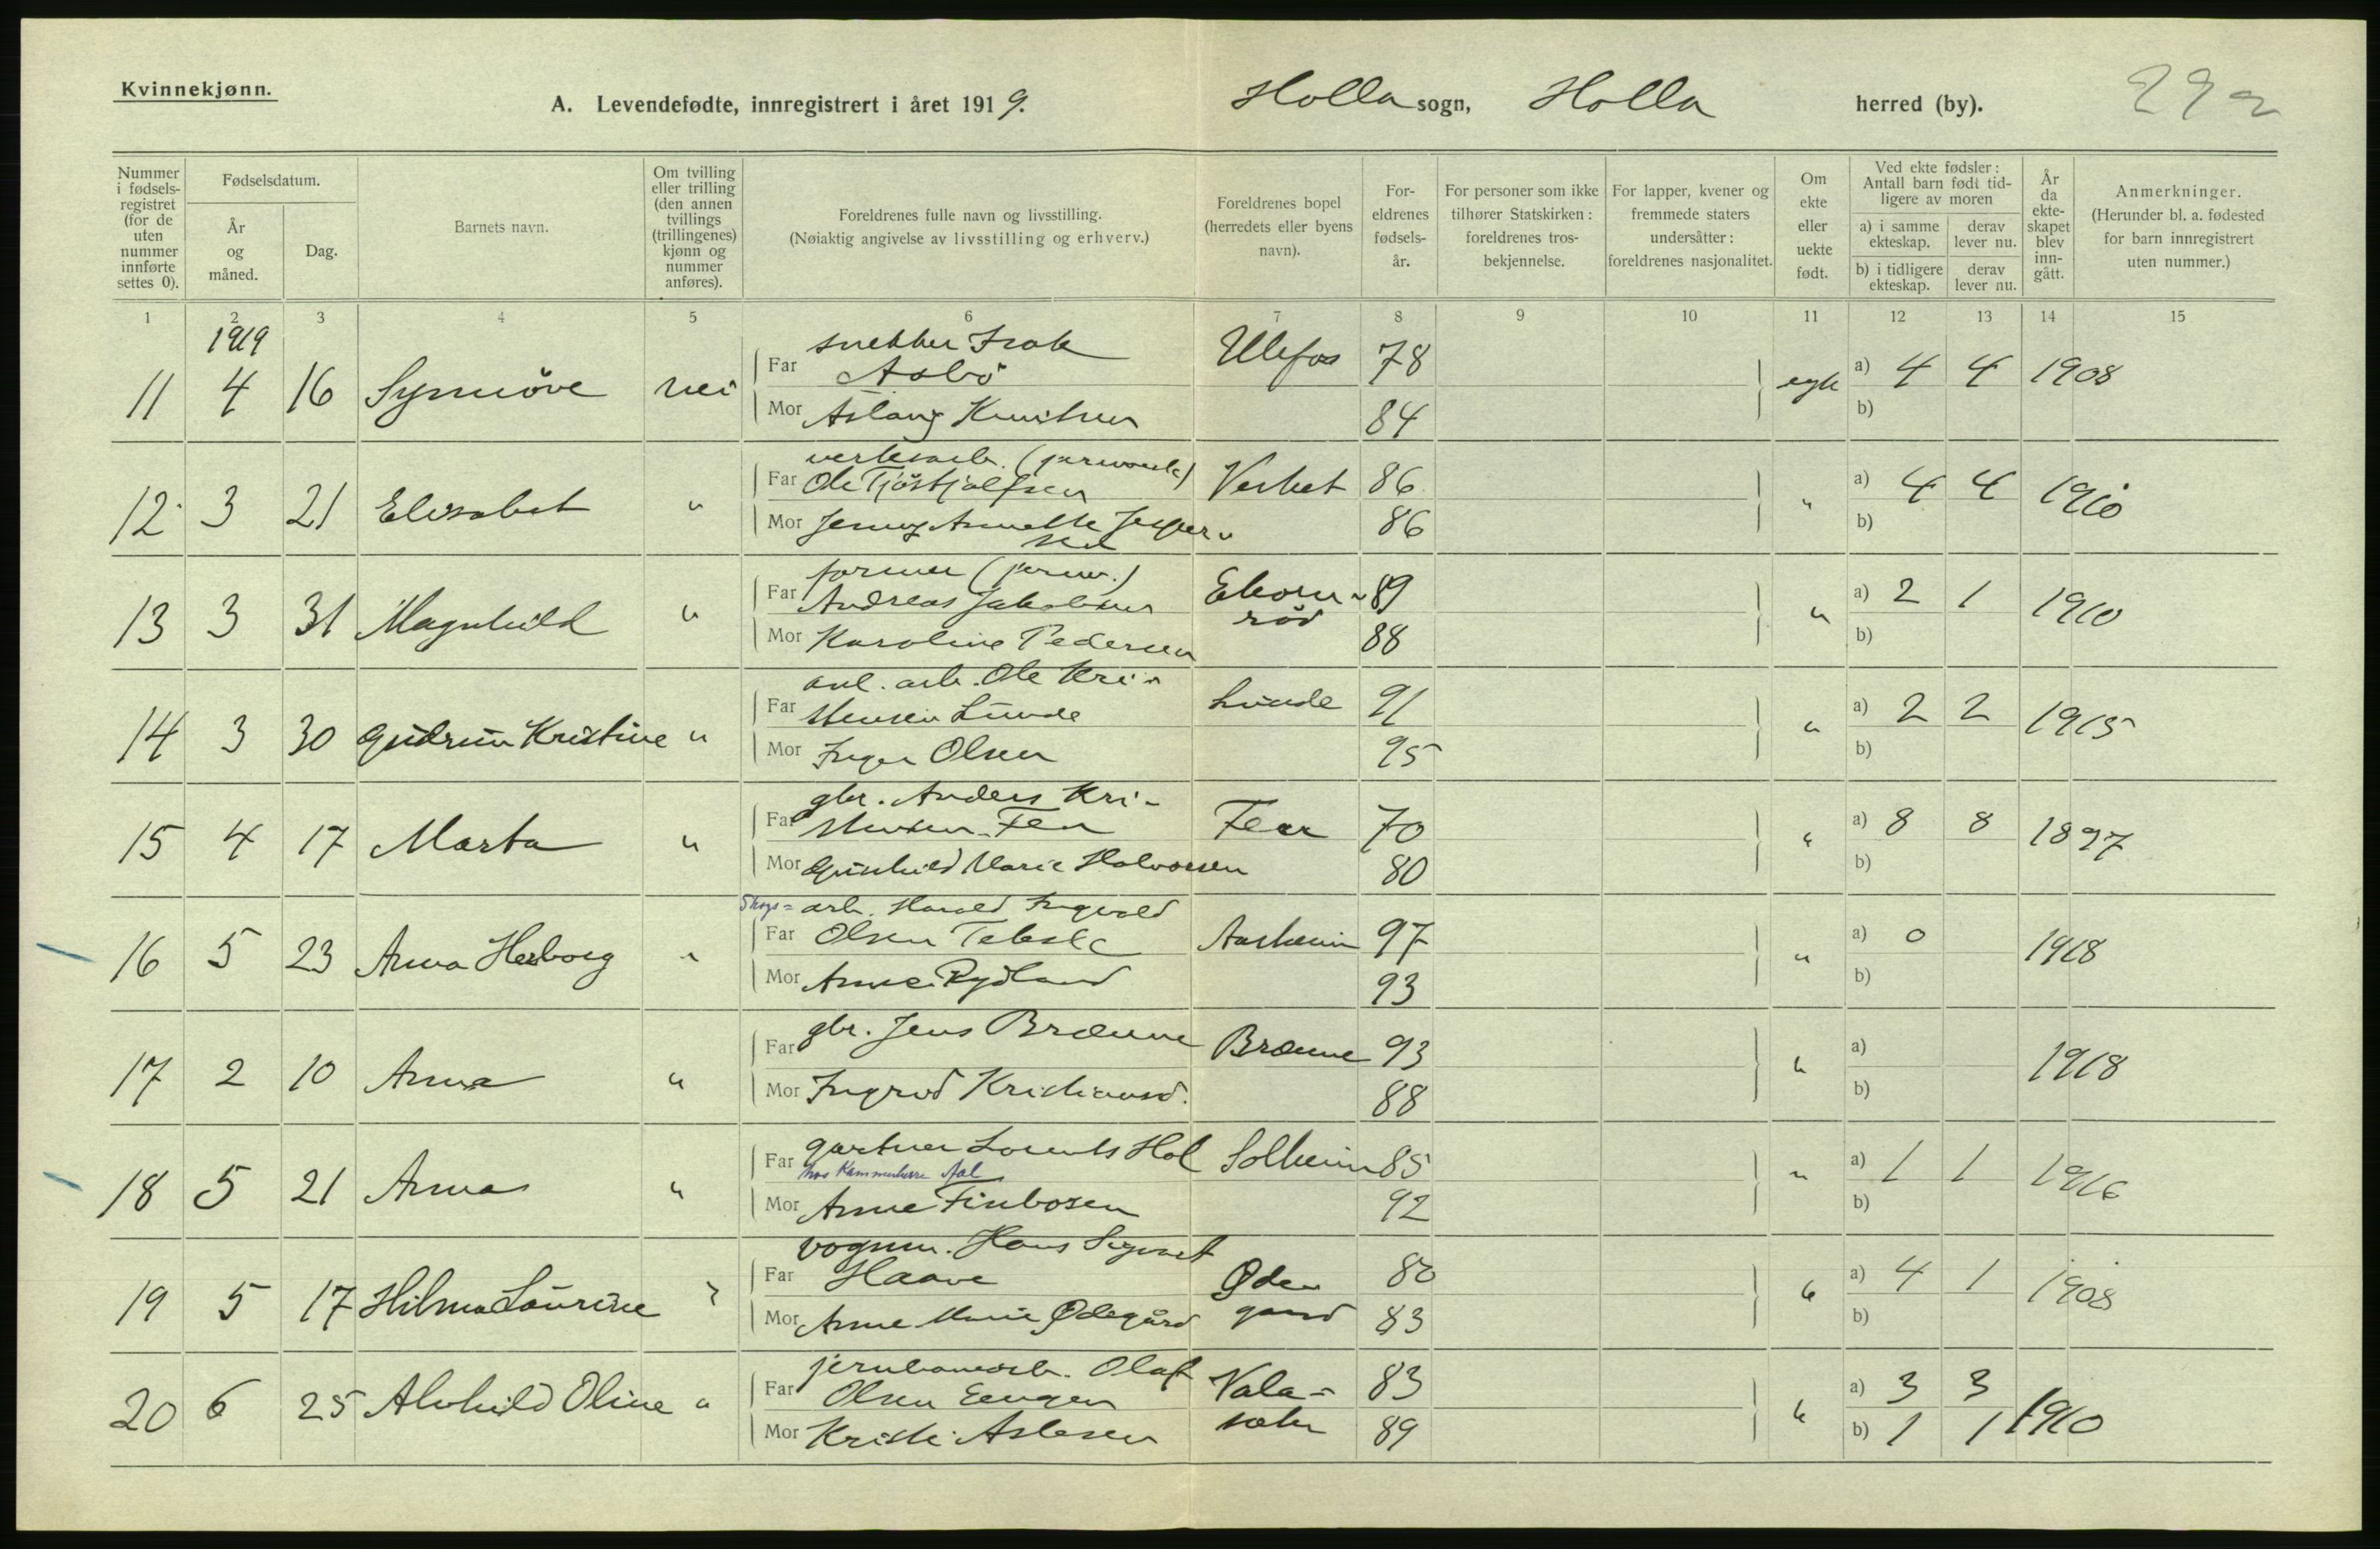 Kvinnekjønn.
A. Levendefødte, innregistrert i året 1919.
Holla sogn, Holla herred (by).
Nummer i fødsels-registret (for de uten nummer innførte settes 0).
Fødselsdatum.
År og måned.
Dag.
Barnets navn.
Om tvilling eller trilling (den annen tvillings (trillingenes) kjønn og nummer anføres).
Foreldrenes fulle navn og livsstilling.
(Nøiaktig angivelse av livsstilling og erhverv.)
Foreldrenes bopel (herredets eller byens navn).
For-eldrenes fødsels-år.
For personer som ikke tilhører Statskirken: foreldrenes tros-bekjennelse.
For lapper, kvener og fremmede staters undersåtter: foreldrenes nasjonalitet.
Om ekte eller uekte født.
Ved ekte fødsler: Antall barn født tid-ligere av moren
a) i samme ekteskap.
derav lever nu.
b) i tidligere ekteskap.
derav lever nu.
År da ekte-skapet blev inn-gått.
Anmerkninger.
(Herunder bl. a. fødested for barn innregistrert uten nummer.)
1 2 3 4 5 6 7 8 9 10 11 12 13 14 15
1919
snekker Isak
11 4 16 Synnöve nei Far Aabö Ulefos 78 a) 4 4 1908
Mor Aslaug Knutsen 84 b)
Far Ole Tjöstjolfsen Verket 86 a) 4 4 1910
12 3 21 Elisabet "
Mor Jenny Annette Jesper-
sen 86 b)
former (jernv.)
13 3 31 Magnhild " Far Andreas Jakobsen Ekorn-
röd 89 " a) 2 1 1910
Mor Karoline Pedersen 88 b)
anl. arb. Ole Kri-
14 3 30 Gudrun Kristine " Far stensen Lunde Lunde 91 " a) 2 2 1915
Mor Inger Olsen 95 b)
gbr. Anders Kri-
15 4 17 Marta " Far stensen Fen Feen 70 " a) 8 8 1897
Mor Gunhild Marie Halvorsen 80 b)
Skogs= arb. Harald Ingvald
16 5 23 Anna Herborg " Far Olsen 97 " a) 0 1918
Mor Anne Rydland 93 b)
17 2 10 Anna " Far gbr. Jens Brænne Brænne 93 " a) 1918
Mor Ingrid Kristiansd. 88 b)
18 5 21 Anna " Far gartner Lorents Hol Solheim 85 " a) 1 1 1916
hos Kammerherre Aal
Mor Anne Finbosen 92 b)
vognm. Hans Sigurd
19 5 17 Hilma Laurine " Far Haave Øde-
gaard 80 " a) 4 1 1908
Mor Anne Marie Ødegård 83 b)
jernbanearb. Olaf
20 6 25 Alvhild Oline " Far Olsen Eengen Vala=
sæter 83 " a) 3 3 1910
Mor Kristi Aslesen 89 b) 1 1